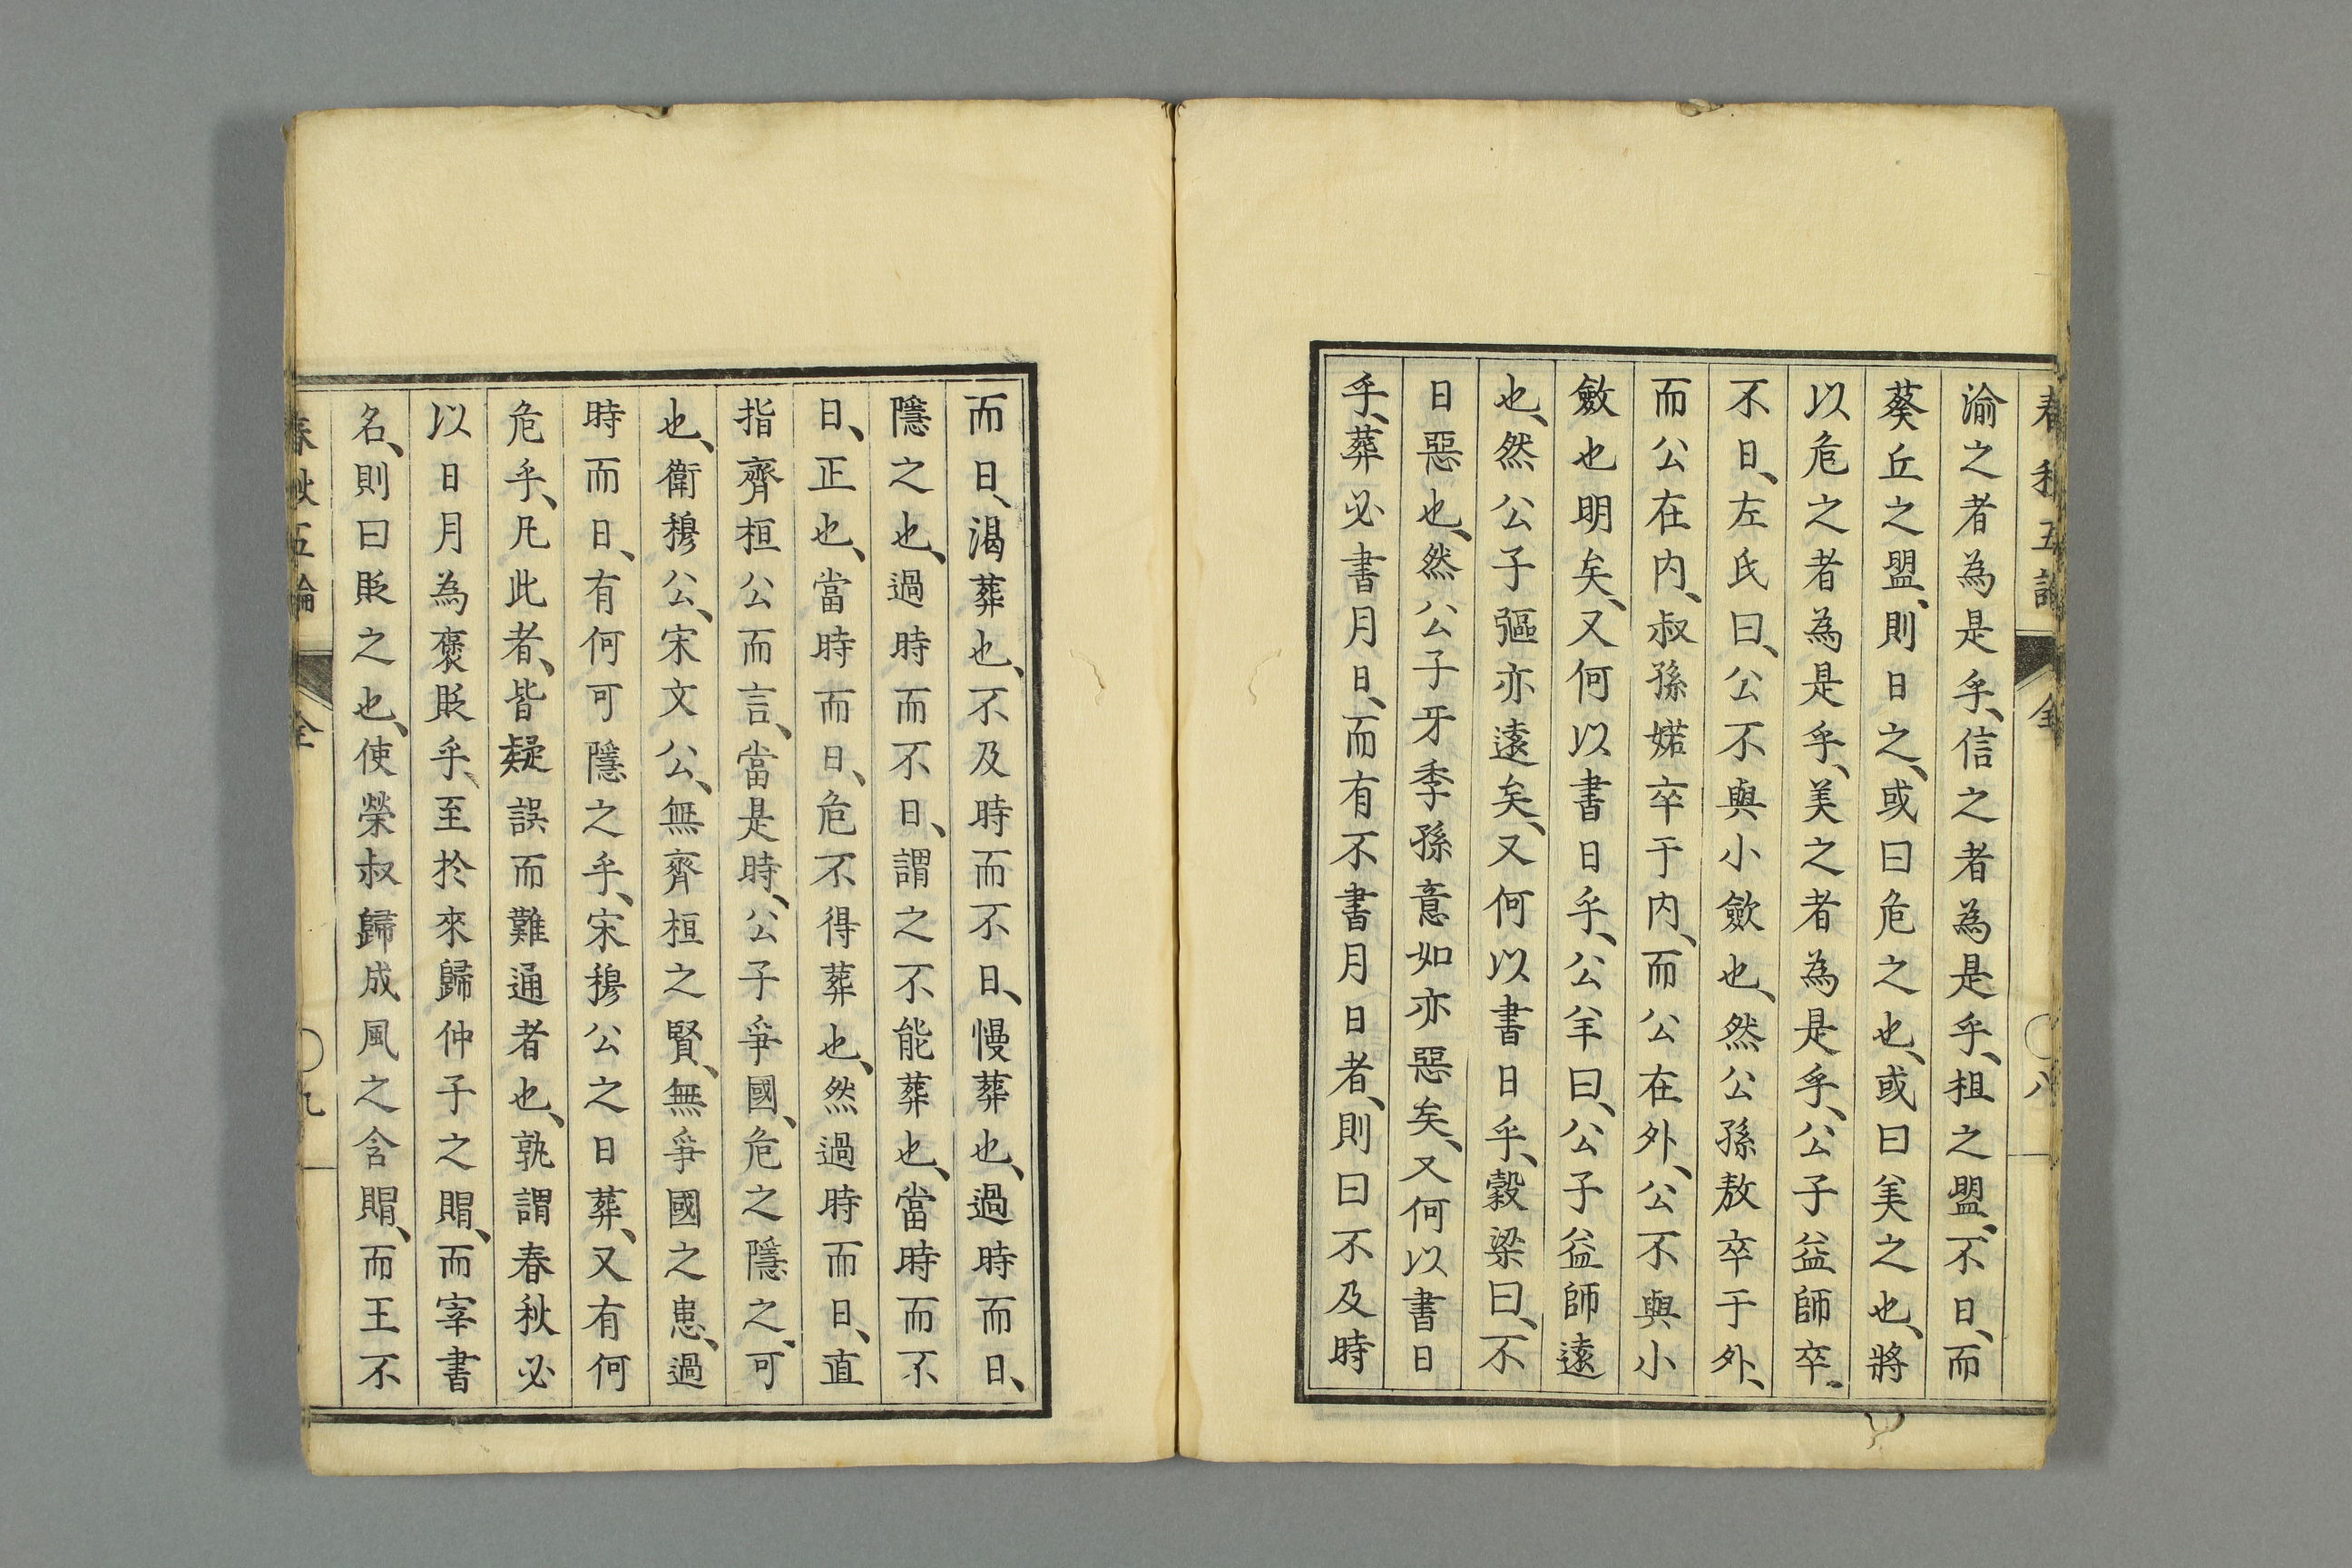 春秋五論 全 八
渝之者為是乎、信之者為是乎、柤之盟、不日、而
葵丘之盟、則日之、或曰危之也、或曰美之也、將
以危之者為是乎、美之者為是乎、公子益師卒、
不日、左氏曰、公不與小斂也、然公孫敖卒于外、
而公在内、叔孫婼卒于内、而公在外、公不與小
斂也明矣、又何以書日乎、公羊曰、公子益師遠
也、然公子彄亦遠矣、又何以書日乎、穀梁曰、不
日惡也、然公子牙季孫意如亦惡矣、又何以書日
乎、葬必書月日、而有不書月日者、則曰不及時
而日、渴葬也、不及時而不日、慢葬也、過時而日、
隱之也、過時而不日、謂之不能葬也、當時而不
日、正也、當時而日、危不得葬也、然過時而日、直
指齊桓公而言、當是時、公子爭國、危之隱之、可
也、衛穆公、宋文公、無齊桓之賢、無爭國之患、過
時而日、有何可隱之乎、宋穆公之日葬、又有何
危乎、凡此者、皆疑誤而難通者也、孰謂春秋必
以日月為褒貶乎、至於來歸仲子之賵、而宰書
名、則曰貶之也、使榮叔歸成風之含賵、而王不
春秋五論 全 九